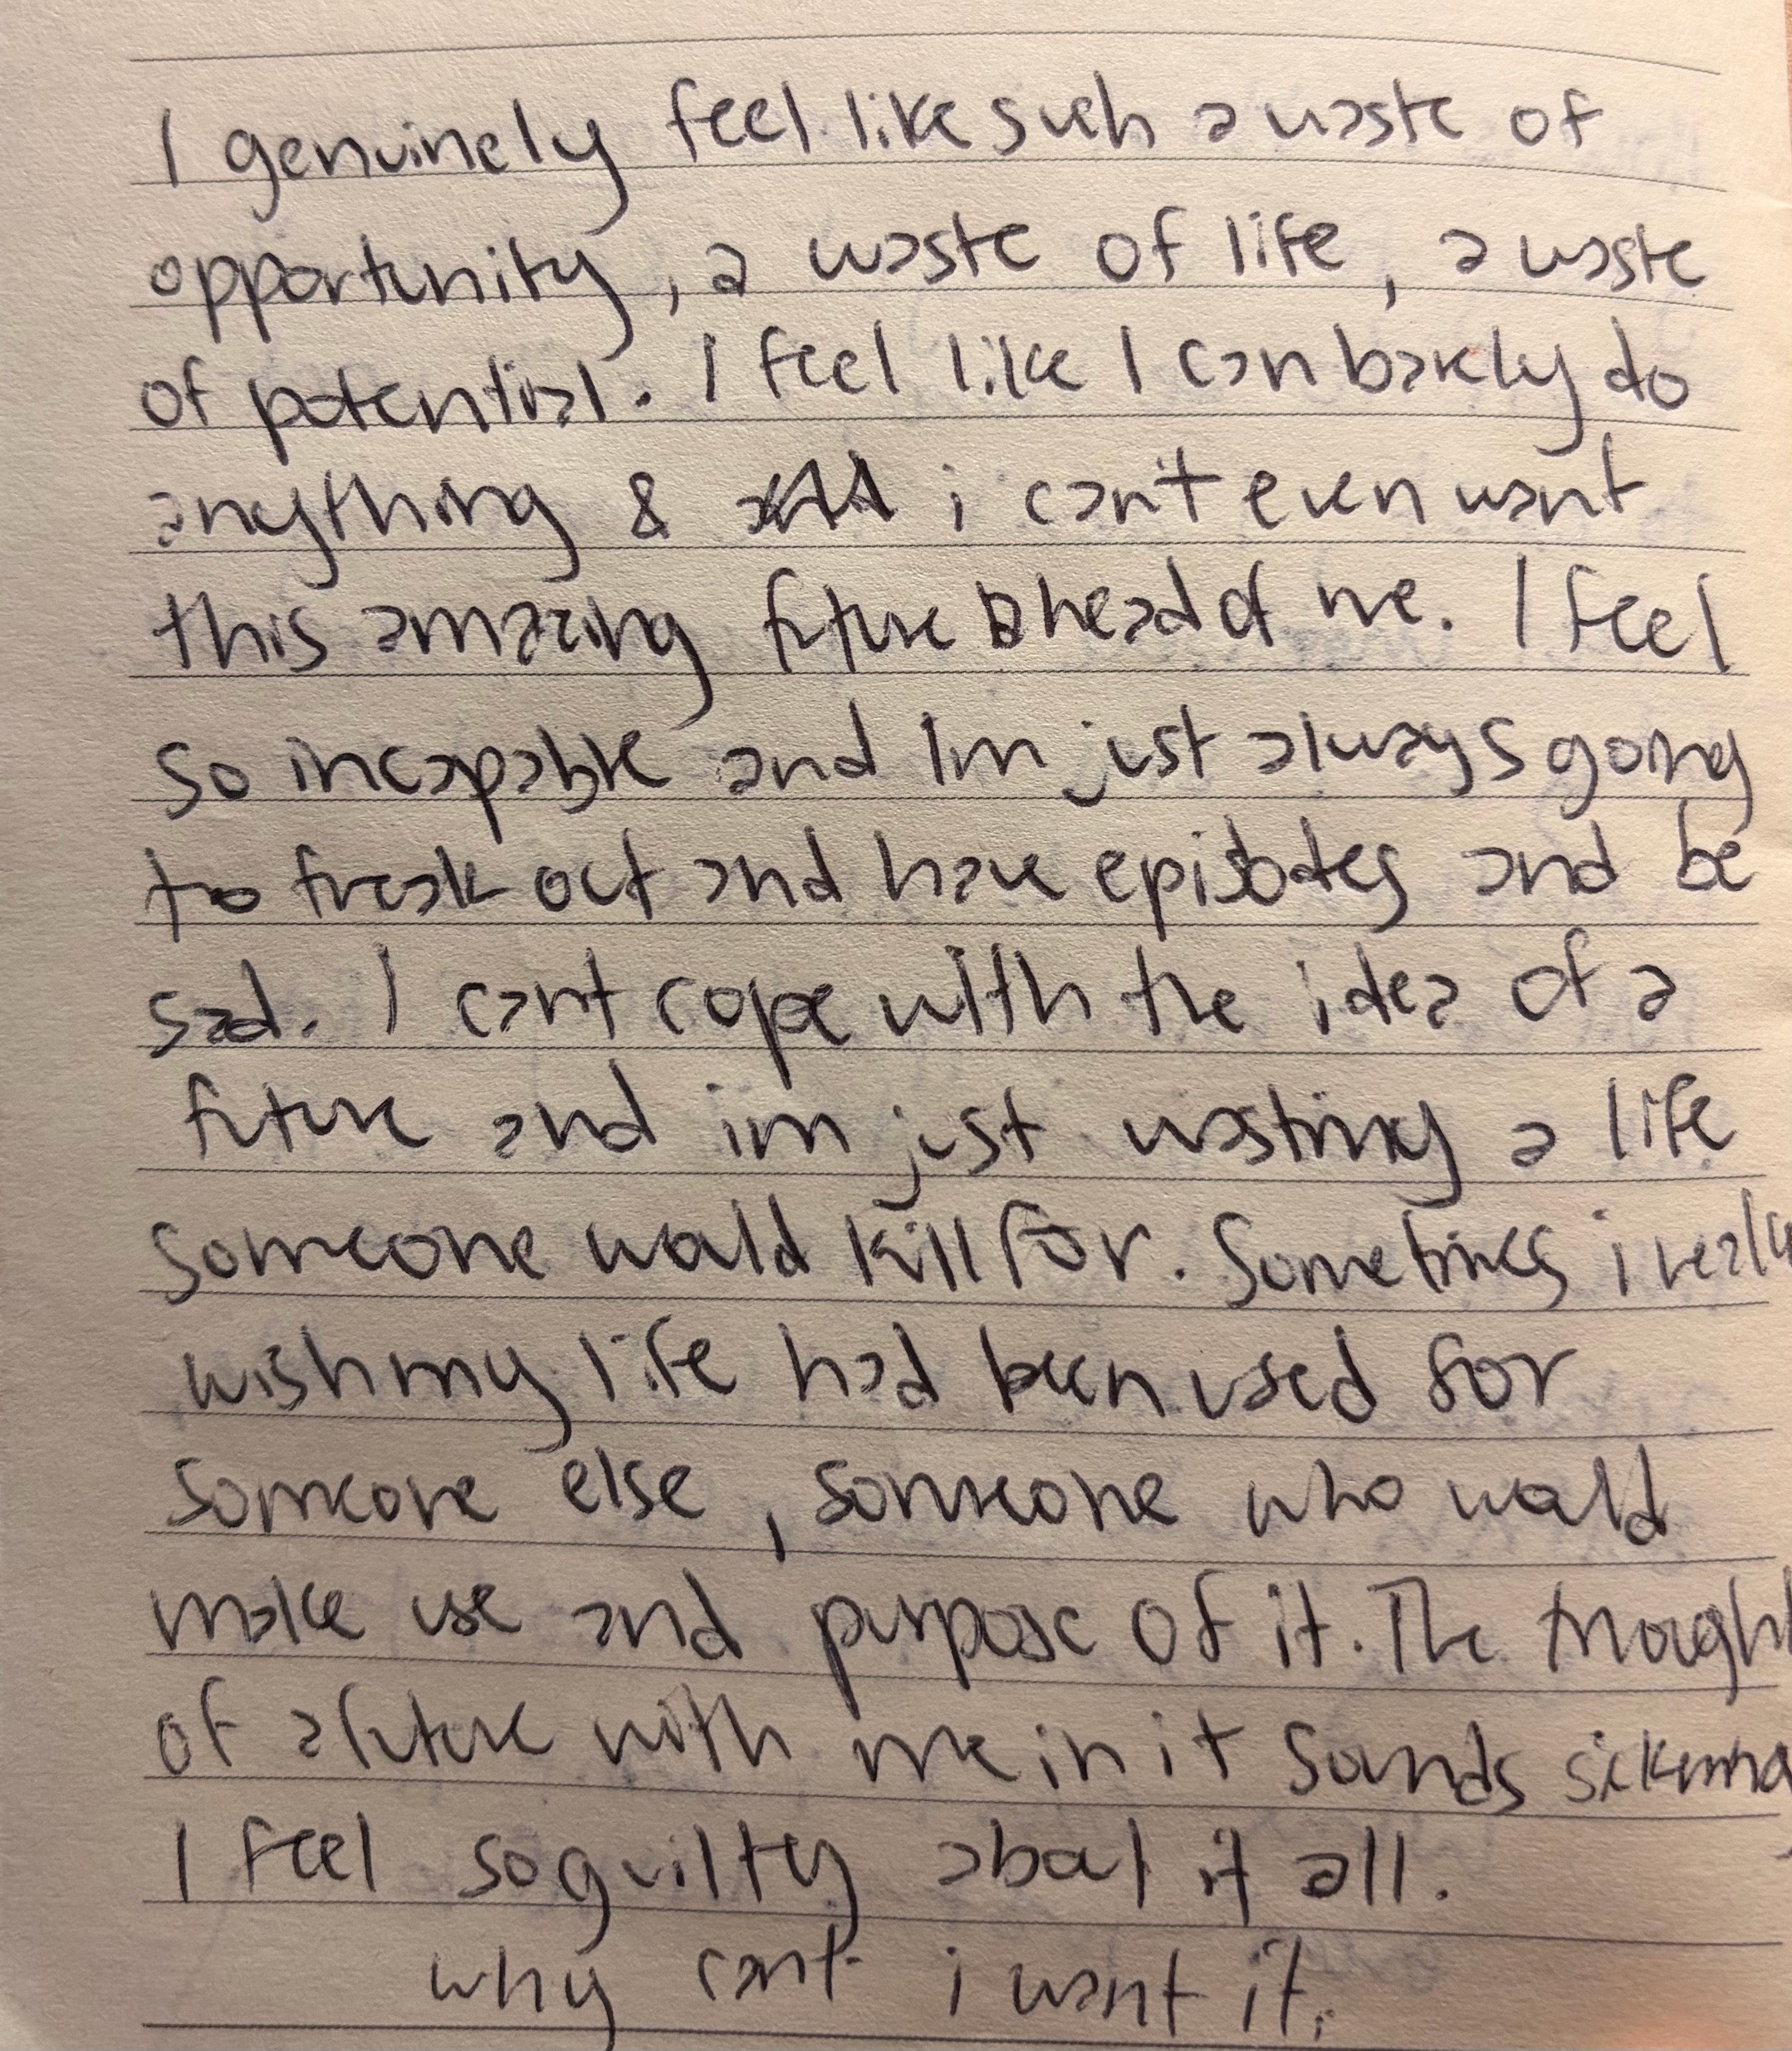 I genuinely feel like such a waste of
opportunity, a waste of life, a waste
of potential. I feel like I can barely do
anything & i can't even want
this amazing future ahead of me. I feel
so incapable and Im just always going
to freak out and have episodes and be
sad. I cant cope with the idea of a
future and im just wasting a life
someone would kill for. Sometimes i really
wish my life had been used for
someone else, someone who would
make use and purpose of it. The thought
of a future with me in it sounds sickening
I feel so guilty about it all.
why cant i want it.